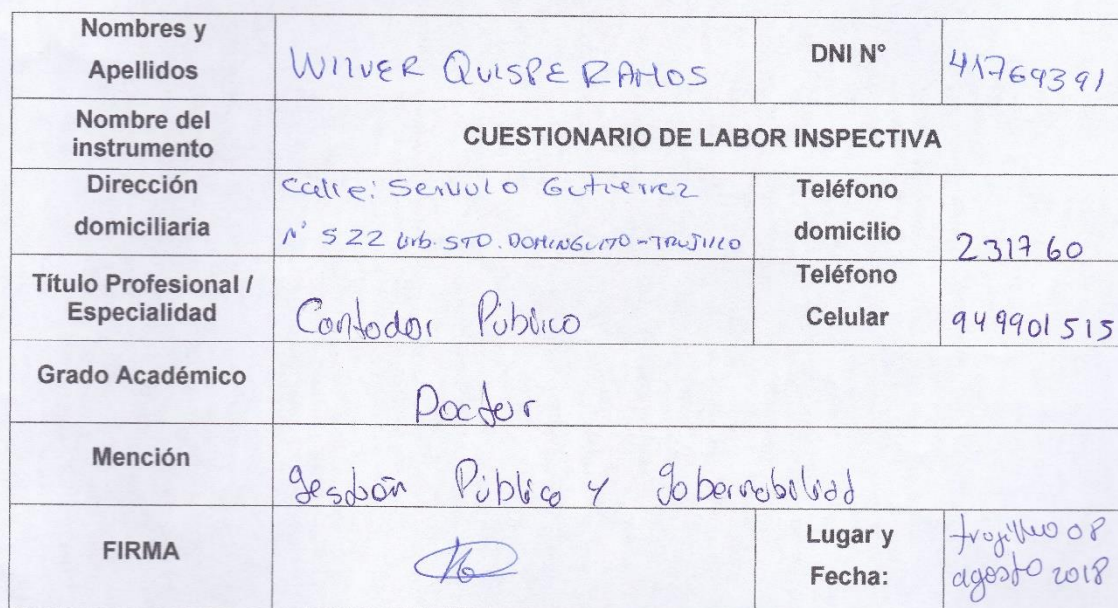 Nombres y Apellidos
WILVER QUISPE RAMOS
DNI N°
41769391
Nombre del instrumento
CUESTIONARIO DE LABOR INSPECTIVA
Dirección domiciliaria
calle: Servulo Gutierrez
N° 522 Urb. STO. DOMINGUITO - TRUJILLO
Teléfono domicilio
231760
Título Profesional / Especialidad
Contador Público
Teléfono Celular
949901515
Grado Académico
Doctor
Mención
Gestión Pública y Gobernabilidad
FIRMA
Lugar y Fecha:
trujillo 08
agosto 2018